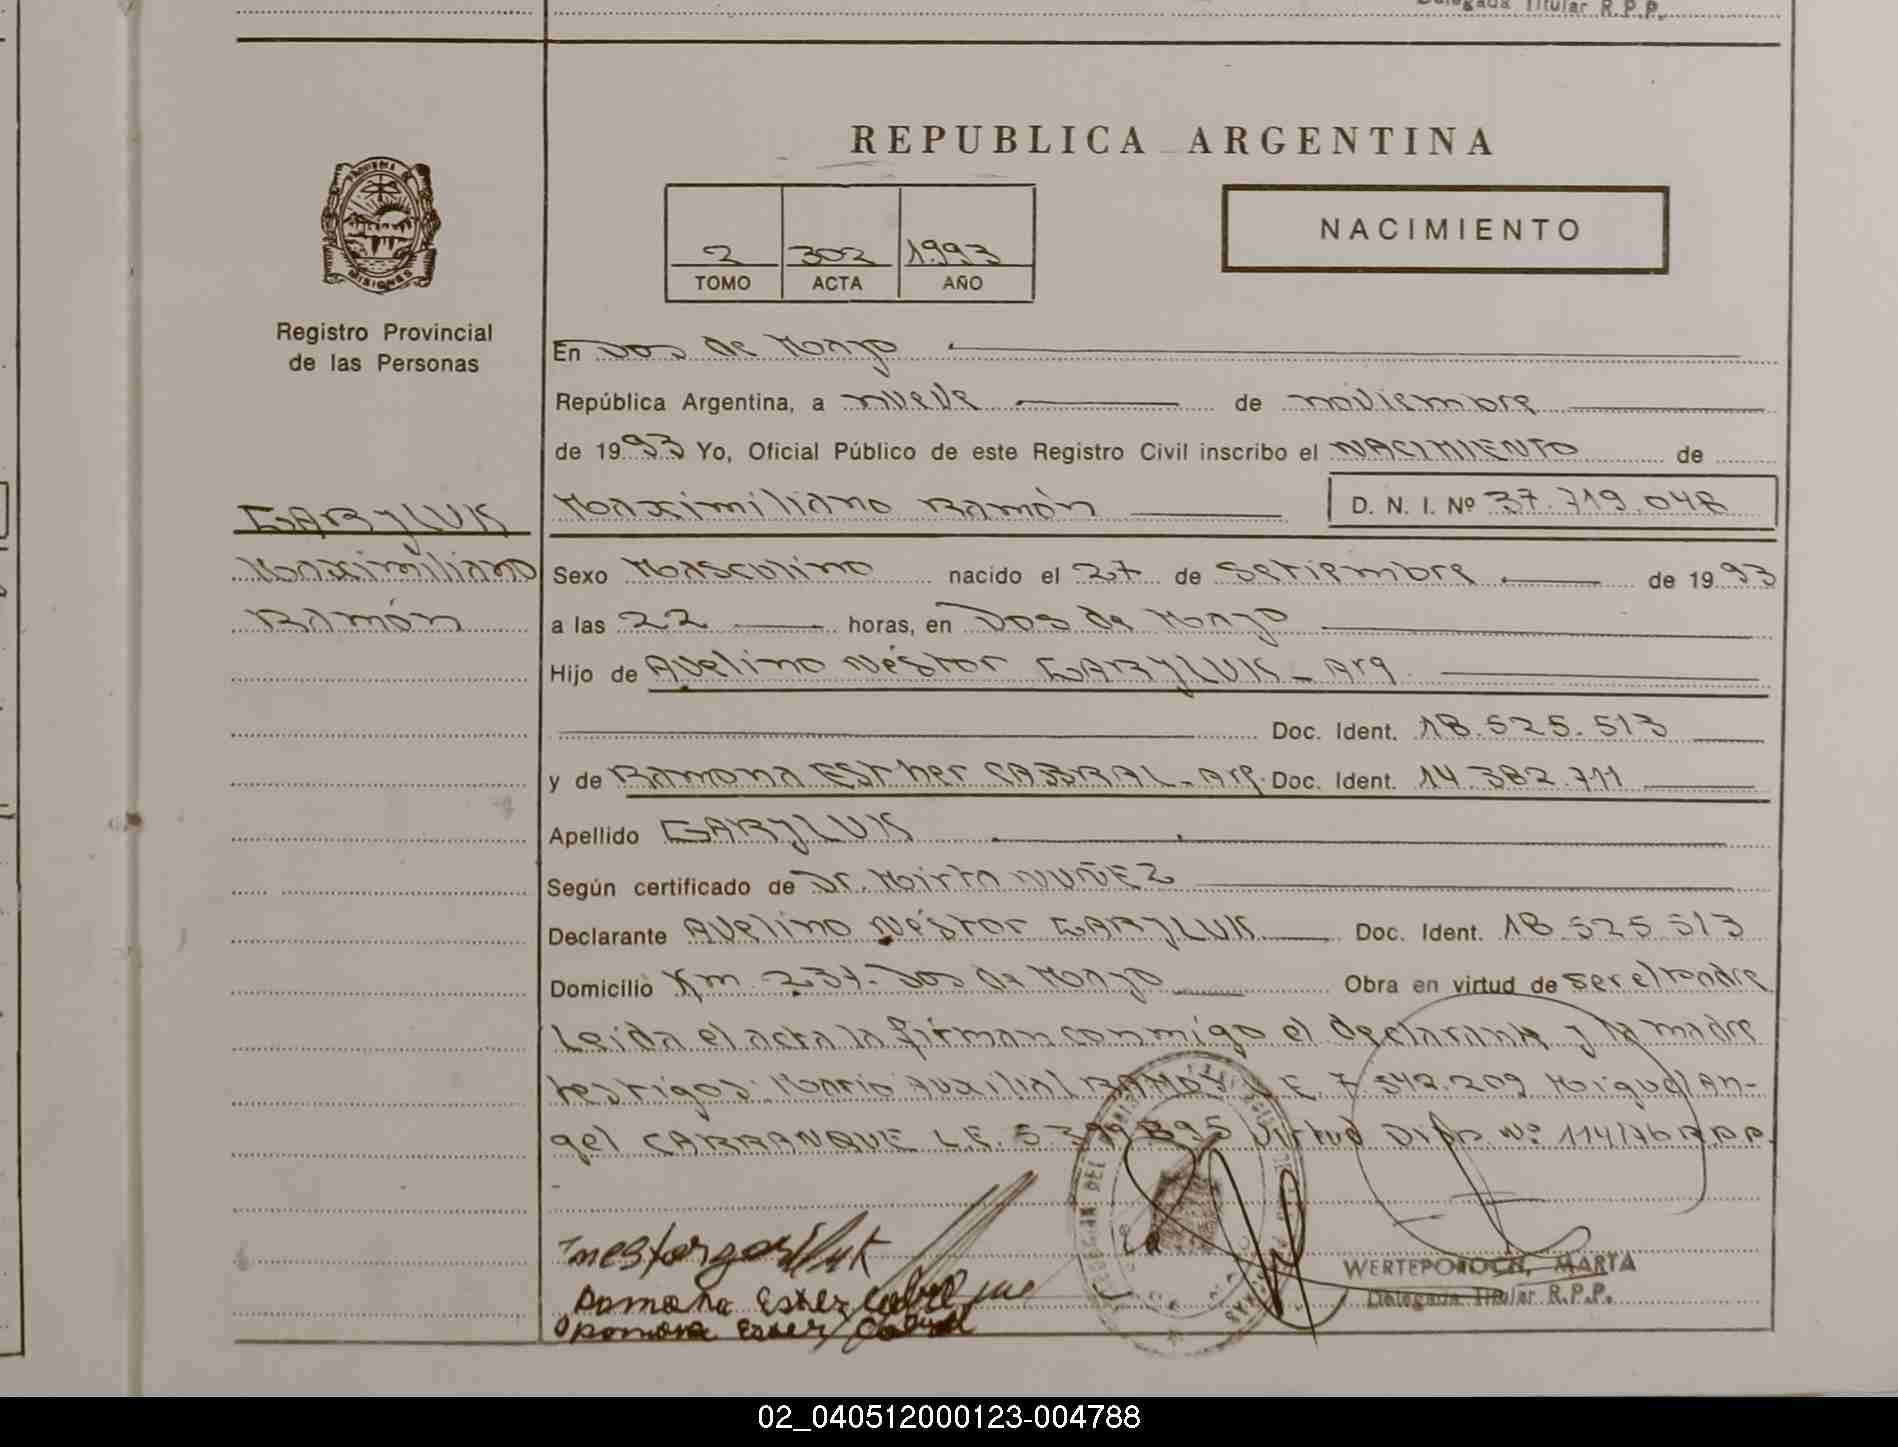 Delegada Titular R.P.P.
REPUBLICA ARGENTINA
PROVINCIA DE MISIONES
2 302 1993
TOMO ACTA AÑO
NACIMIENTO
Registro Provincial
de las Personas
En Dos de Mayo
República Argentina, a nueve de noviembre
de 1993 Yo, Oficial Público de este Registro Civil inscribo el NACIMIENTO de
Maximiliano Ramón D. N. I. Nº 37.719.048
GARYLUIK
Maximiliano
Ramón
Sexo Masculino nacido el 27 de Setiembre de 1993
a las 22 horas, en Dos de Mayo
Hijo de Avelino Néstor GARYLUIK - Arg.
Doc. Ident. 18.525.513
y de Ramona Esther CABRAL - Arg. Doc. Ident. 14.382.711
Apellido GARYLUIK
Según certificado de Dr. Mirta NUÑEZ
Declarante Avelino Néstor GARYLUIK Doc. Ident. 18.525.513
Domicilio Km 237 - Dos de Mayo Obra en virtud de ser el padre
Leida el acta la firman conmigo el declarante y la madre
testigos: Mario Auxilial RAMOS L.E. 7.542.209 Miguel An-
gel CARRANQUE L.E. 5 399 895 Virtud Disp. Nº 114/76 R.P.P.
nestor
Ramona Ester Cabral
Ramona Ester Cabral
WERTEPOROCH, MARTA
Delegada Titular R.P.P.
02_040512000123-004788